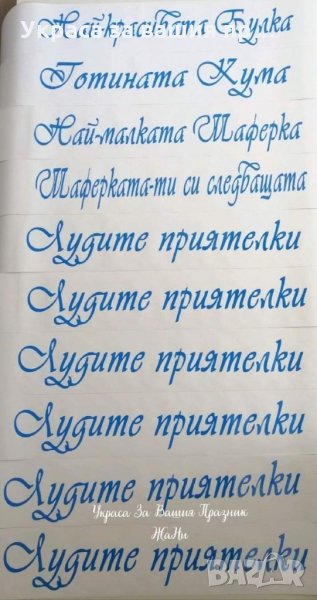 Украса за вашия пр
Най-красивата Булка
Готината Кума
Най-малката Шаферка
Шаферката-ти си следващата
Лудите приятелки
Лудите приятелки
Лудите приятелки
Лудите приятелки
Лудите приятелки
Украса За Вашия Празник
ЖаНи
Лудите приятелки
BAZAR